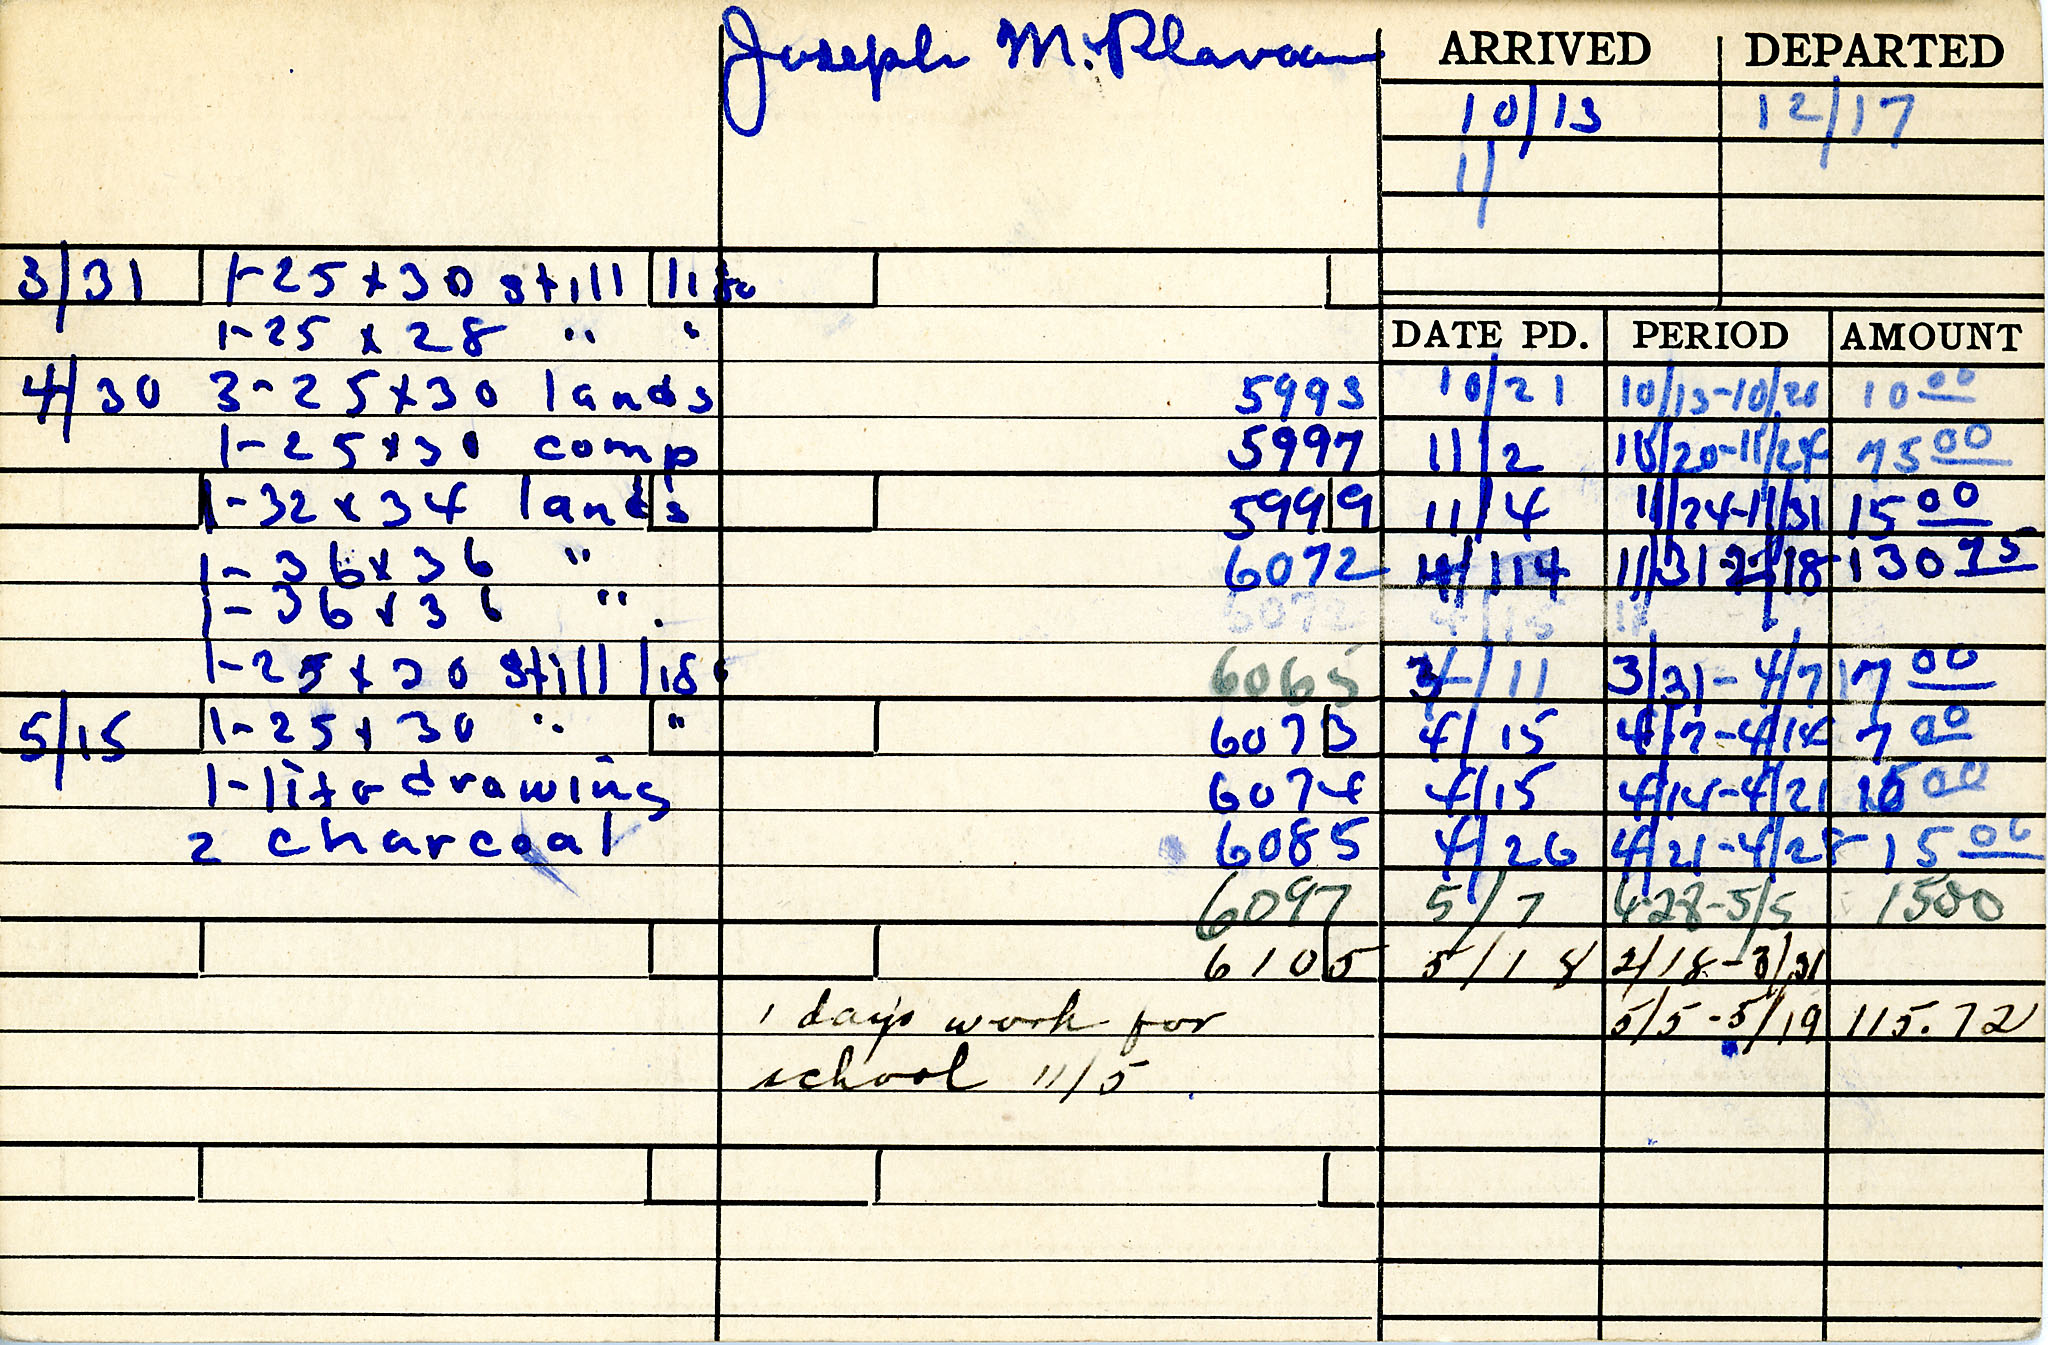 Joseph M. Plavcan
ARRIVED DEPARTED
10/13 12/17
11/
3/31 1-25x30 still life
1-25x28 " "
DATE PD. PERIOD AMOUNT
4/30 3-25x30 lands 5993 10/21 10/13-10/20 10 00
1-25x30 comp 5997 11/2 10/20-11/24 75 00
1-32x34 lands 5999 11/4 11/24-11/31 15 00
1-36x36 " 6072 4/14 11/31-2/18 130 75
1-36x36 " 6072 4/15 11
1-25x30 still life 6065 /11 3/31-4/7 17 00
5/15 1-25x30 " " 6073 4/15 4/7-4/14 7 00
1-lito drawing 6074 4/15 4/14-4/21 15 00
2 charcoal 6085 4/26 4/21-4/28 15 00
6097 5/7 4-28-5/5 1500
6105 5/18 2/18-3/31
1 days work for 5/5-5/19 115.72
school 11/5